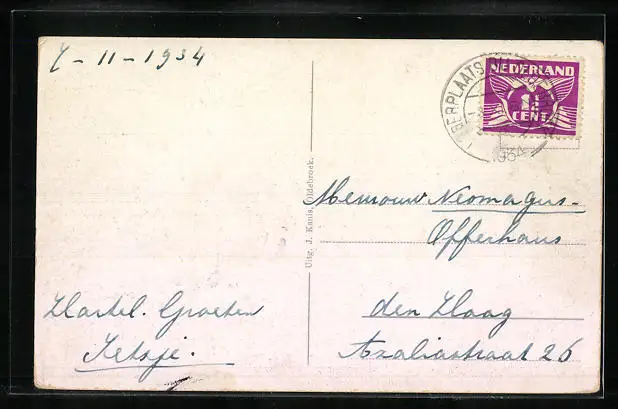 7-11-1934
NEDERLAND
1½
CENT
1934
Uitg. J. Kanis, Oldebroek.
Mevrouw Neomagus-
Offerhaus
den Haag
Azaliastraat 26
Hartel. Groeten
Jetsje.